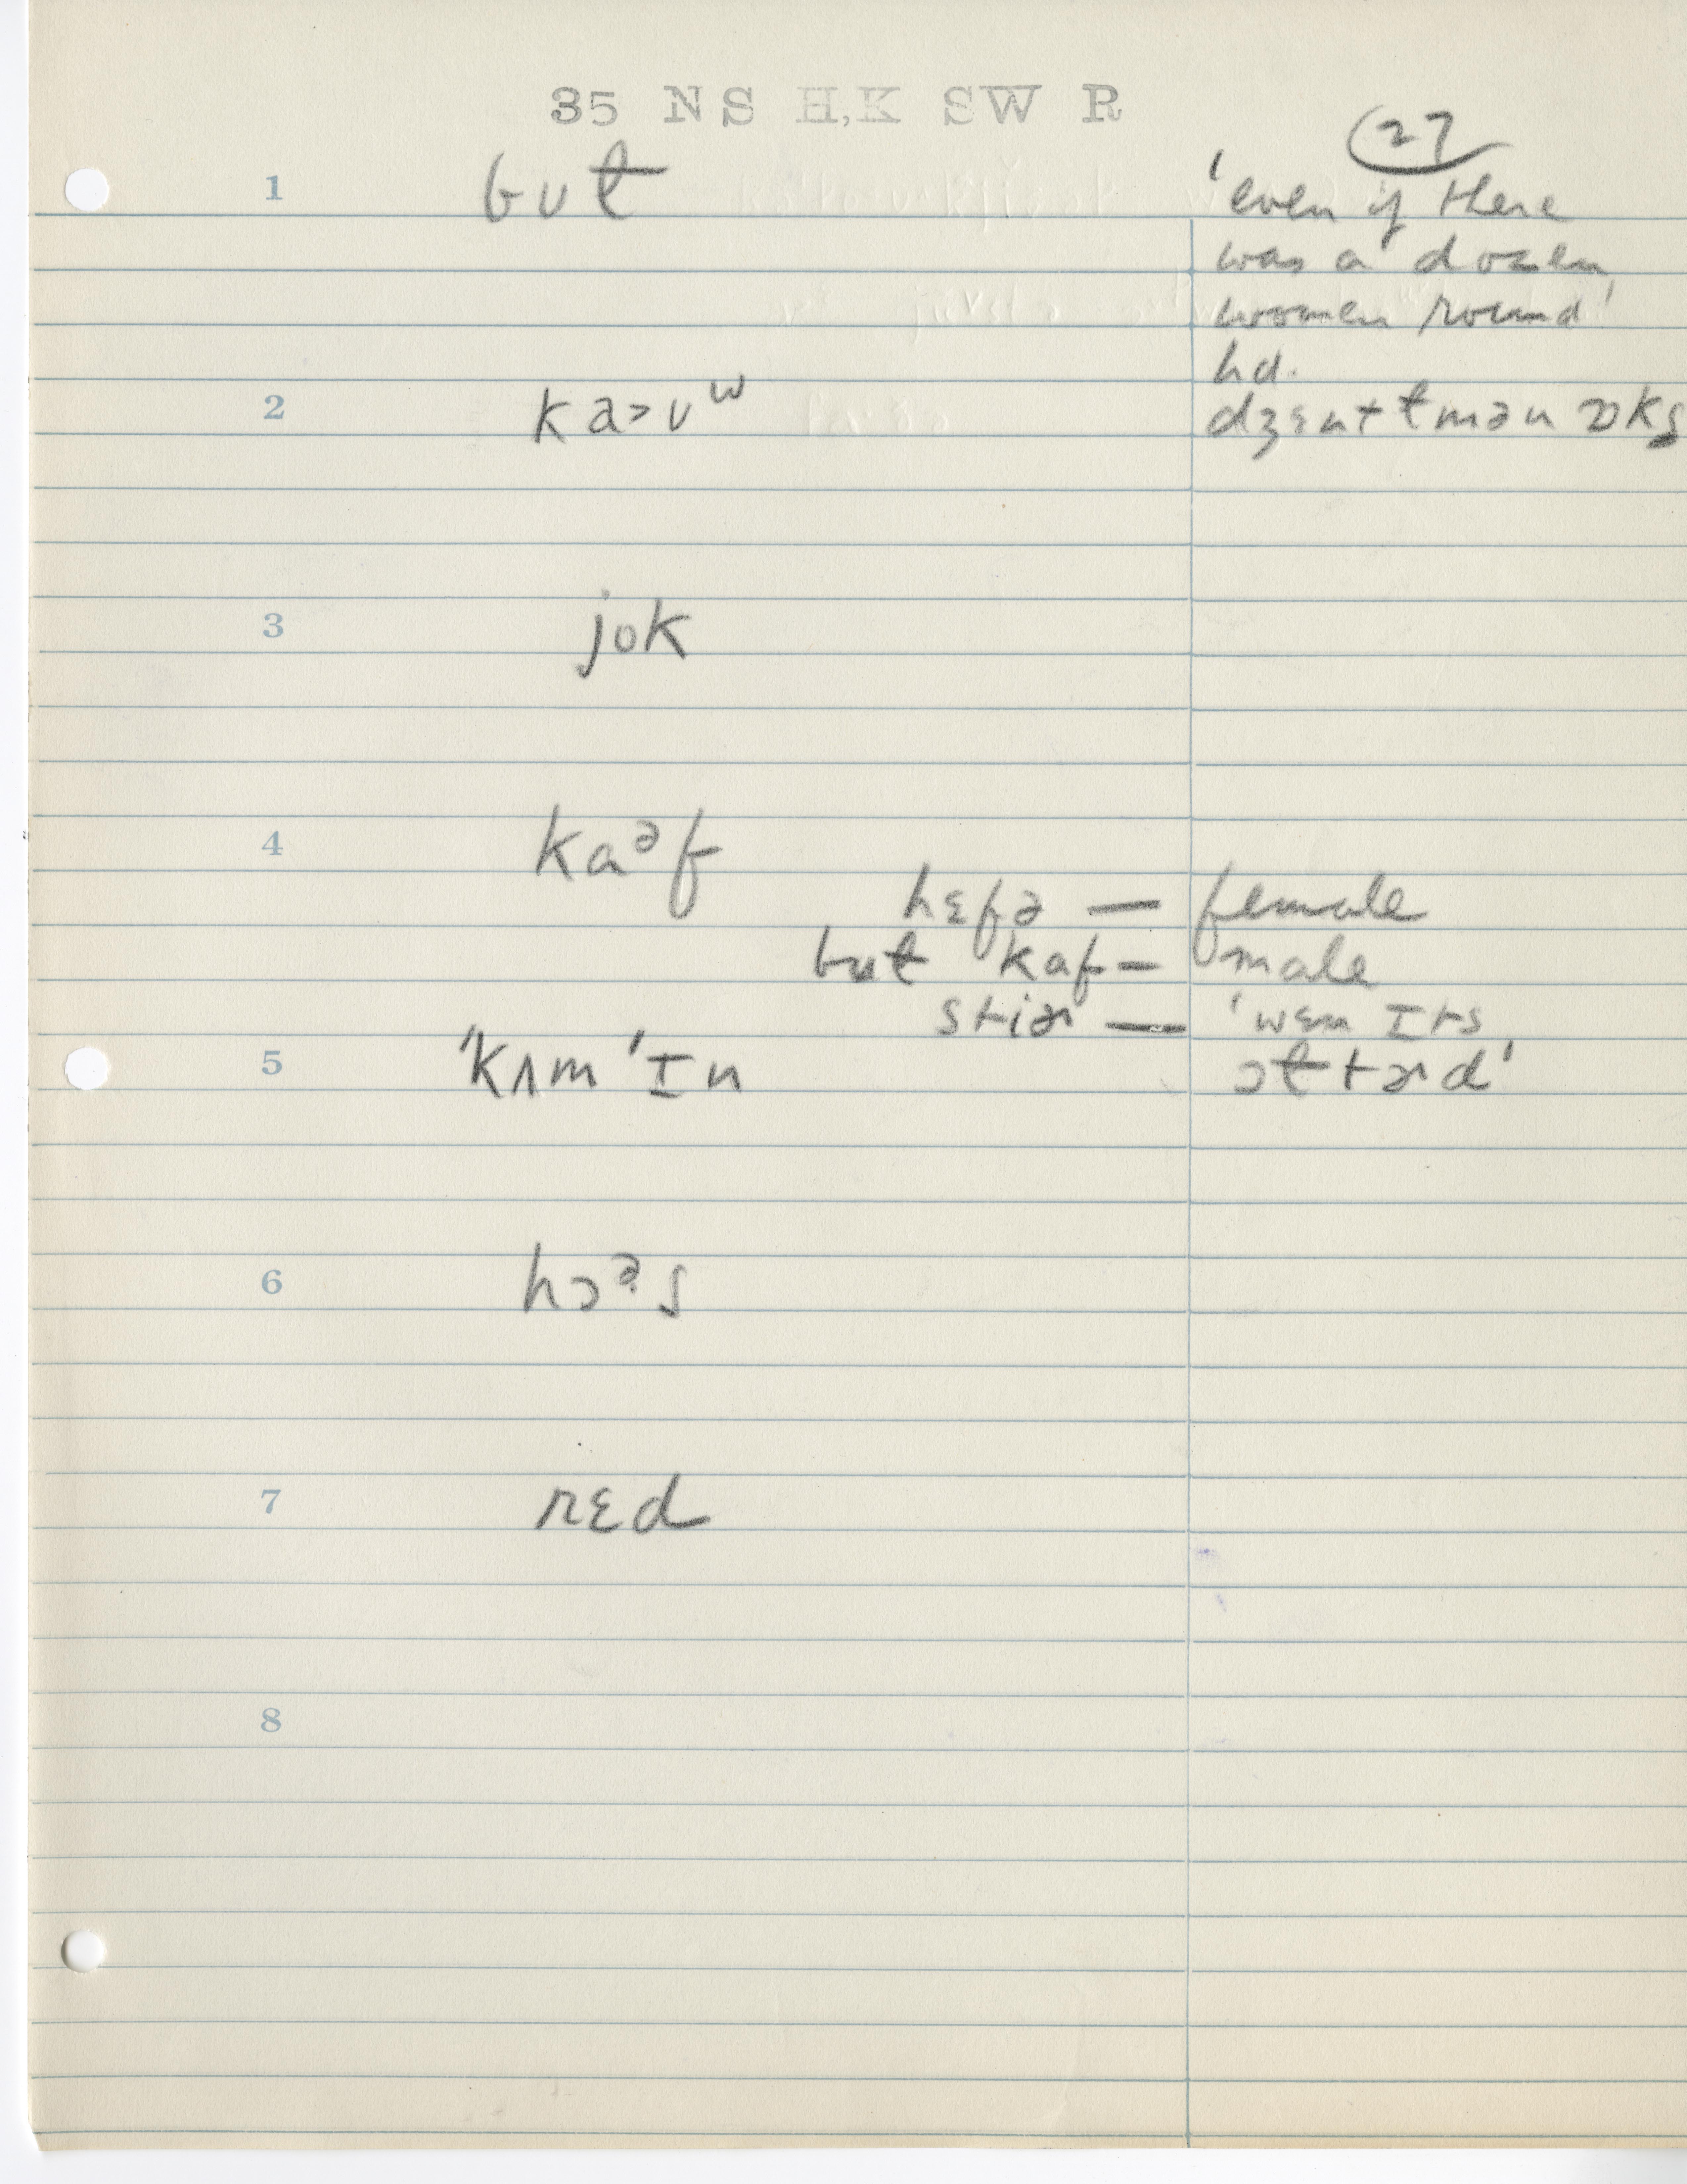 35 NS H,K SW R
27
1 bʊɫ
'even if there
was a dozen
women round'
hd.
2 ka>ʊʷ
dʒɛntɫmən ɒks
3 jok
4 kaᵊf
hɛfə — female
but kaf — male
stiɚ — 'wɛn ɪts
ɔɫtɚd'
5 'kʌm 'ɪn
6 hɔᵊs
7 rɛd
8